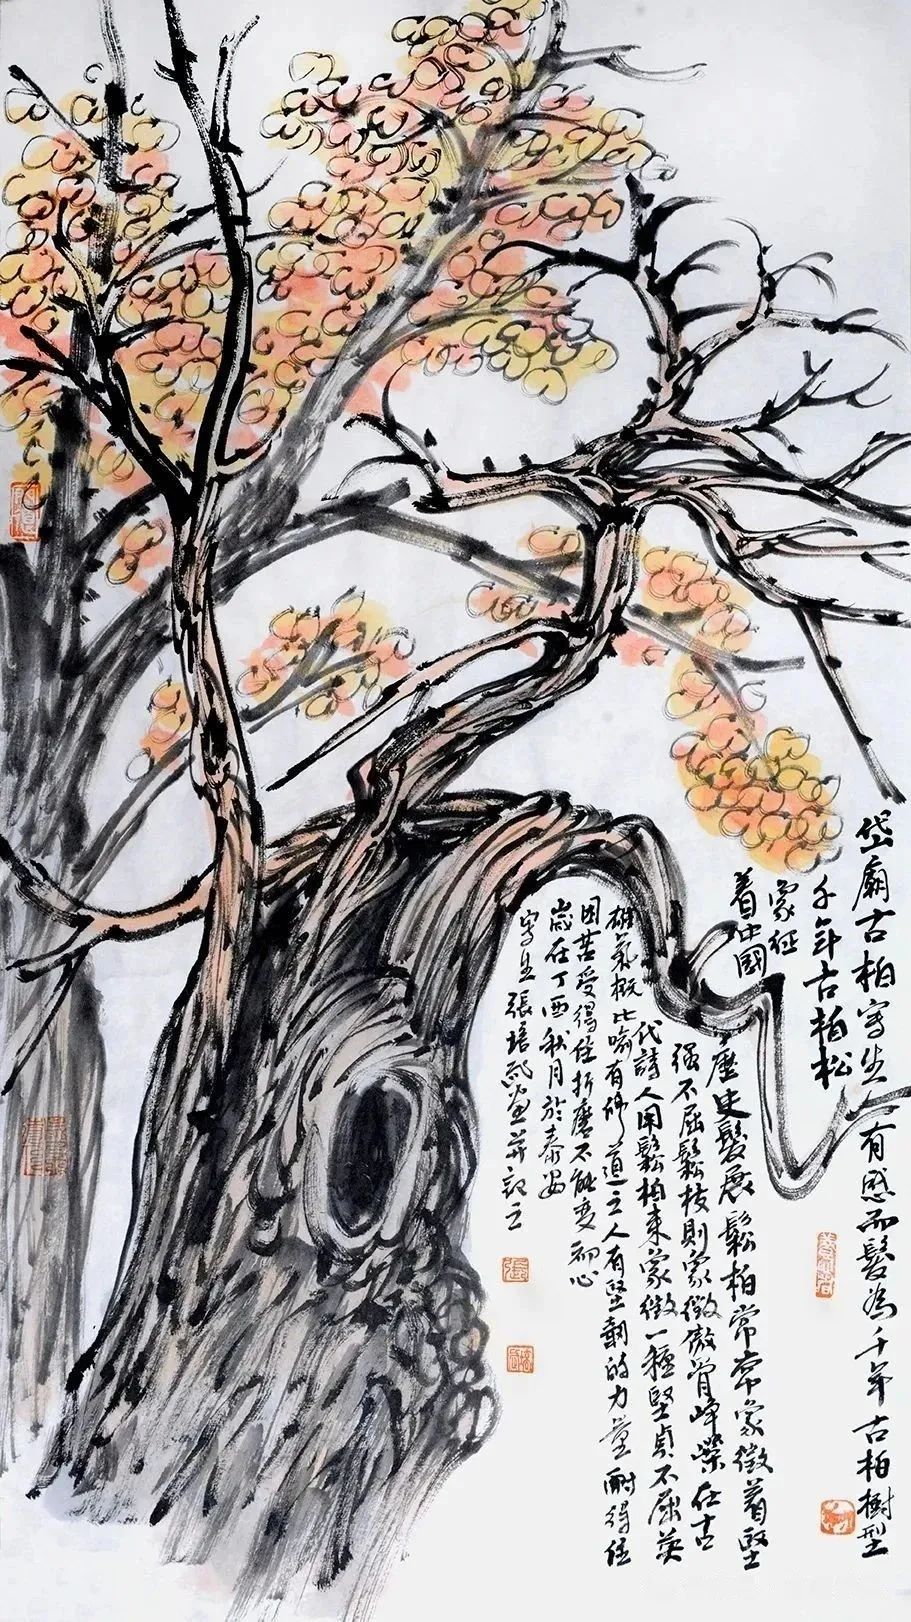 岱廟古柏寫生 人有感而髮為千年古柏樹型
千年古柏松
象征
着中國
歷史髮展鬆柏常常象徵着堅
强不屈鬆枝則象徵傲骨崢嶸在古
代詩人用鬆柏來象徵一種堅貞不屈英
雄氣概比喻有師道之人有堅韌的力量耐得住
困苦受得住折磨不能變初心
歲在丁酉秋月於泰安
寫生張培武畫并記之